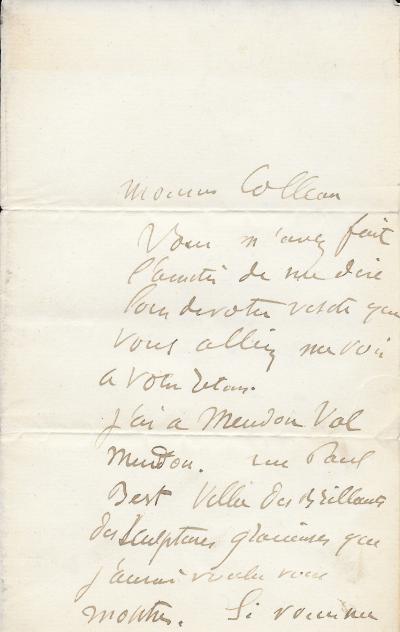 Monsieur Collean
Vous m'avez fait
l'amitié de me dire
lors de votre visite que
vous alliez me voir
a votre retour.
J'ai a Meudon Val
Meudon. rue Paul
Bert Villa des Brillants
des sculptures gracieuses que
j'aurais voulu vous
montrer. Si vous me